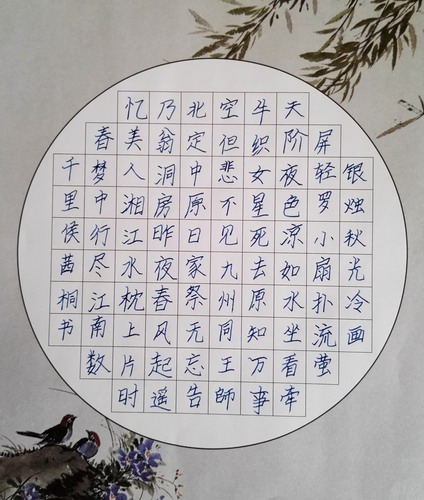 银烛秋光冷画
屏轻罗小扇扑流萤
天阶夜色凉如水坐看牵
牛织女星死去原知万事
空但悲不见九州同王師
北定中原日家祭无忘告
乃翁洞房昨夜春风起遥
忆美人湘江水枕上片时
春梦中行尽江南数
千里侯茜桐书